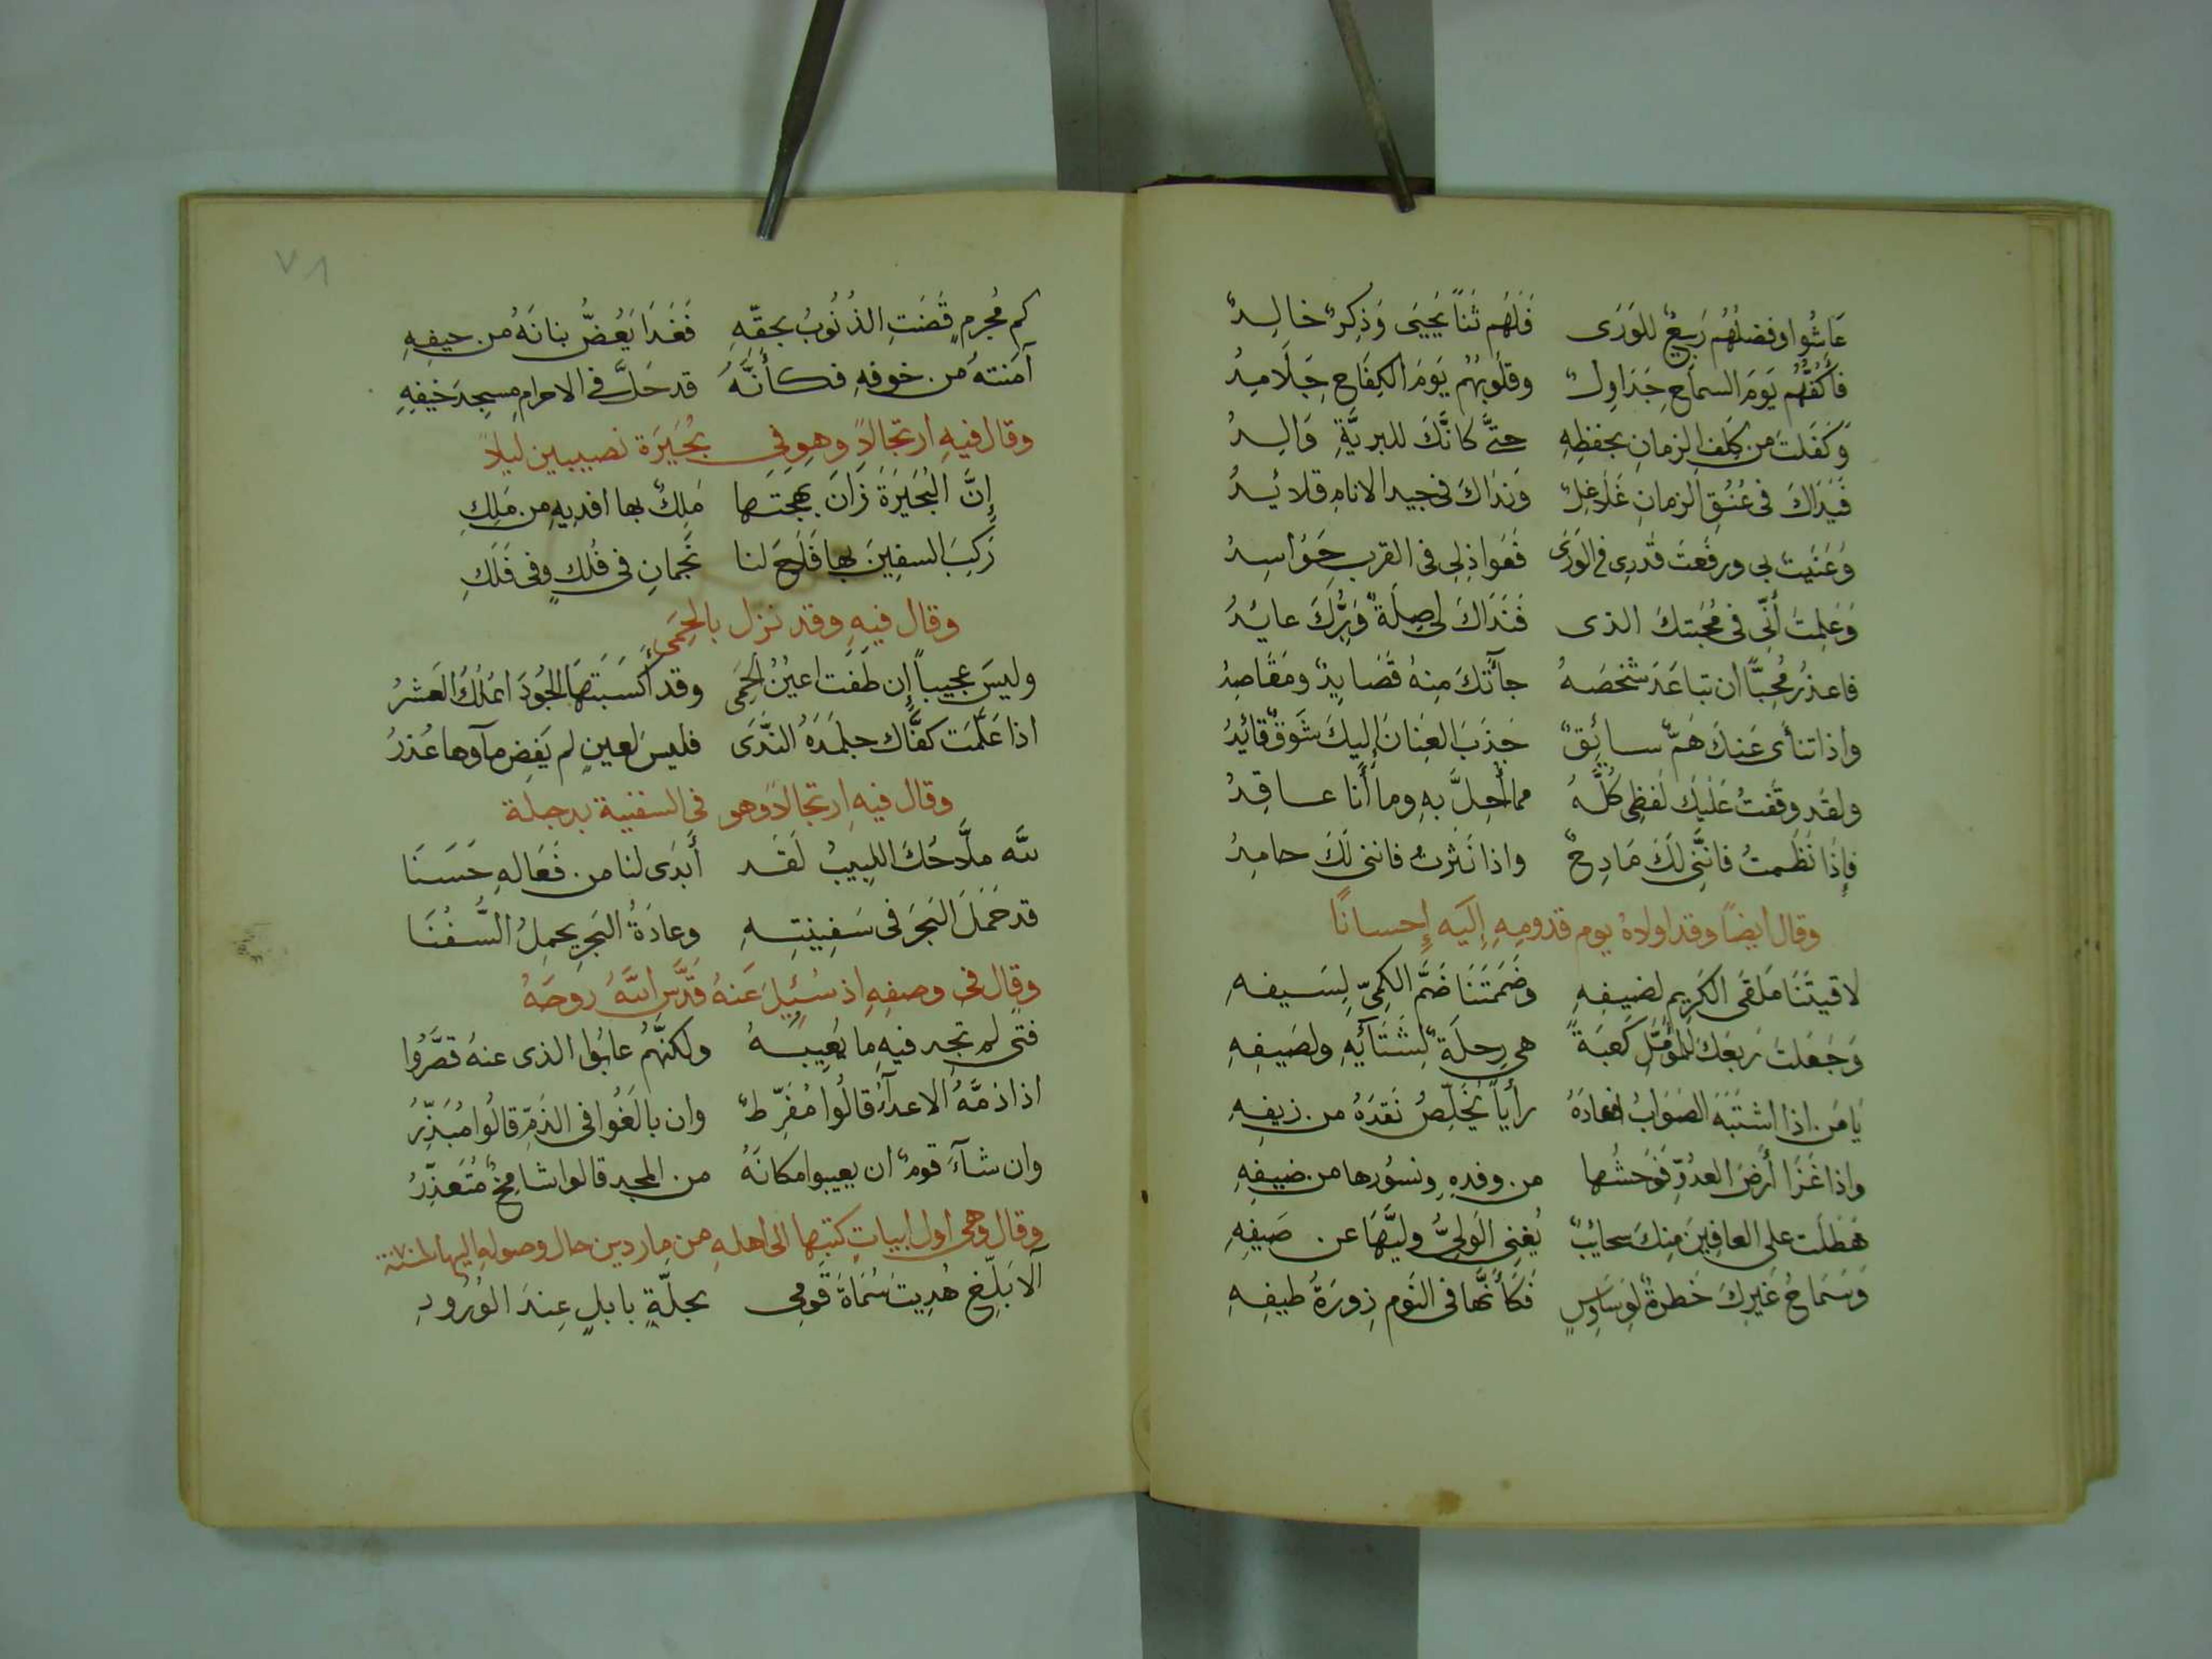 عَاشُوا وفضلُهُم رَبيعٌ للوَرَى فَلَهُم ثَنَاً يَحيَى وَذِكرٌ خالِدٌ
فَأَكُفُّهُم يَومَ السماحِ جَدَاوِلٌ وقلُوبُهُم يَومَ الكِفَاحِ جَلَامِدُ
وَكَفَلتَ من كَلَفِ الزمانِ بحفظِهِ حتَّى كانَّكَ للبريَّةِ وَالِدُ
فَيَدَاكَ فى عُنُقِ الزمانِ غَلَاغِلٌ وَنِدَاكَ فى جيد الانامِ قلائِدُ
وَعَنَيتَ بى ورفَعتَ قَدرِى فى الوَرَى فَعَوَاذِلِى فى القربِ حَوَاسِدُ
وَعَلِمتَ أَنّى فى مُحَبتكَ الذى فَنَدَاكَ لى صِلَةٌ وَبِرُّكَ عايدُ
فاعذرُ مُحِبًّا ان تباعَدَ شخصَهُ جآءَتكَ مِنهُ قَصَايِدٌ ومَقَاصِدُ
واذا تنأى عَنكَ هَمٌّ سائِقٌ جَذَبَ العِنَانَ إِليكَ شَوقٌ قائِدُ
ولقد وقَفتُ عَلَيكَ لَفظِى كُلَّهُ مما أَحِلَّ بهِ وما أَنا عاقِدُ
فإِذَا نَظَمتُ فانَّنِى لَكَ مَادِحٌ واذا نَثَرتُ فاننى لَكَ حامِدُ
وقال ايضًا وقد اولاهُ يوم قدومِهِ إِلَيه إِحسانًا
لاقيتَنَا مَلقَى الكَرِيمِ لضيفِهِ وضَمَمتَنَا ضَمَّ الكمِىّ لِسَيفِهِ
وَجَعَلتَ رَبعَكَ للمُؤَمِّلِ كَعبَةً هى رحلَةٌ لِشَتَائِهِ ولصَيفِهِ
يَا مَن اذا اشتَبَهَ الصَوَابُ افعادَهُ رأياً يُخَلِّصُ نَقدَهُ من زيفِهِ
واذا غَزَا أَرضَ العدُوِّ فَوَحشُها من وفدِهِ ونسُورها من ضيفِهِ
هَطَلَت على العافِينَ مِنكَ سحائِبٌ يُغنِى الوَلىُّ وليَّهَا عن صَيفِهِ
وَسَمَاحُ غَيرِكَ خَطرةٌ لوِسَاوِسٍ فَكَأَنَّها فى النَوم زِورَةُ طيفِهِ
٧٨
كم مُجرمٍ قَضَتِ الذُنُوبُ بحقّهِ فَغَدَا يَعُضُّ بنانَهُ من حيفِهِ
آمَنتهُ من خوفِهِ فكأَنَّهُ قد حَلَّ فى الاحرامِ مسجِدَ خيفِهِ
وقال فيهِ ارتجالاً وهو فى بُحَيَرَة نصيبين ليلاً
إِنَّ البُحَيرَةَ زَانَ بهجتَها مَلِكٌ بها افديِهِ من مَلِكِ
رَكِبَ السفِينَ بها فَلَاحَ لنا نَجمانِ فى فُلكٍ وفى فَلَكِ
وقال فيهِ وقد نزل بالحِمَى
وليسَ عجيباً إِن طَفَت اعيُنُ الحِمَى وقد أَكسَبَتهَا الجُودَ انمُلُكَ العَشرُ
اذا عَلَّمَت كفَّاك جلمَدَهُ النَّدَى فليسَ لعينٍ لم يَفِض مآوها عُذرُ
وقال فيهِ ارتجالاً وهو فى السفنية بدجلة
للهِ ملَّاحُكَ اللبيبُ لَقَد أَبدَى لنا من فَعَالهِ حَسَنَا
قد حَمَلَ البَحرَ فى سَفِينَتِهِ وعادَةُ البَحرِ يحمِلُ السُّفُنَا
وقال فى وصفِهِ اذ سُئِلَ عَنهُ قدَّسَ اللهُ روحَهُ
فتًى لم تجد فيهِ ما يُعيبهُ ولكنَّهُم عابُوا الذى عنهُ قصَّرُوا
اذا ذمَّهُ الاعدآءُ قالُوا مُفَرِّطٌ وان بالَغُوا فى الذَمّ قالُوا مُبَذِّرُ
وان شآءَ قومٌ ان يعيبوا مكانَهُ من المجدِ قالوا شامِخٌ مُتَعَذِّرُ
وقال وهى اول ابياتٍ كتبها الى اهلهِ من ماردين حال وصولهِ اليها
ألا بَلِّغ هُدِيتَ سُمَاةَ قَومِى بحلّةِ بابلٍ عِندَ الوُرُودِ